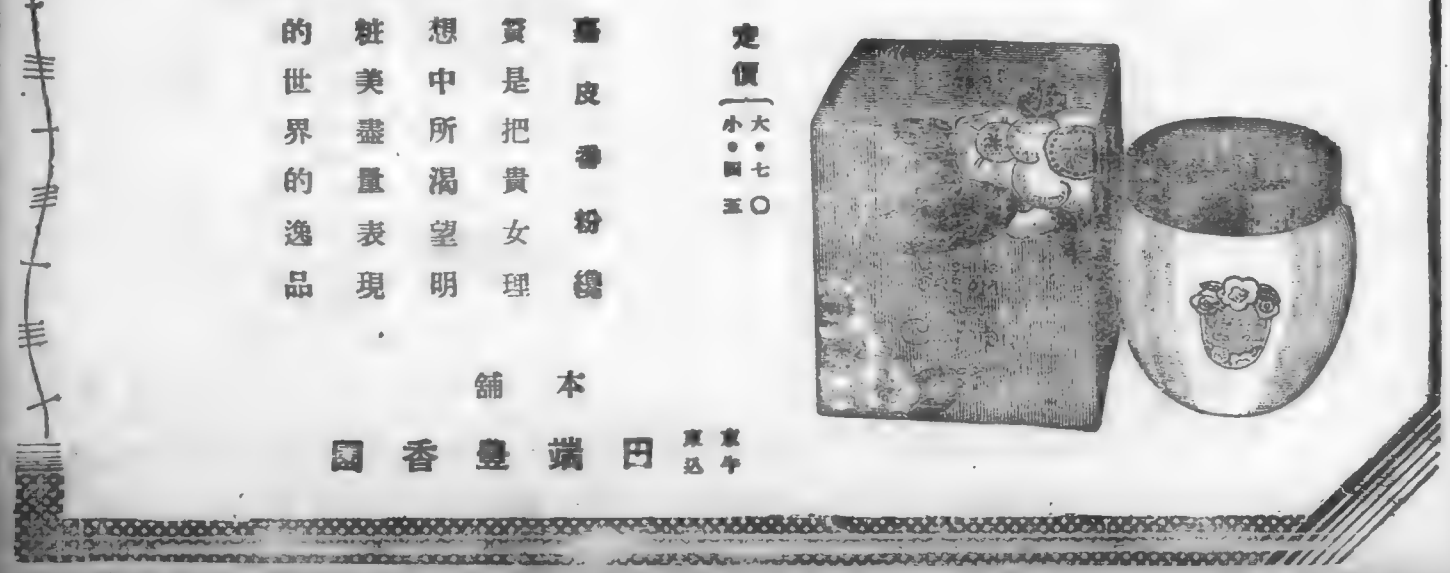 定價
大・七〇
小・四五
皮香粉纔
實是把貴女理
想中所渴望明
粧美盡量表現
的世界的逸品
本舖
東京
牛込
田端豊香園